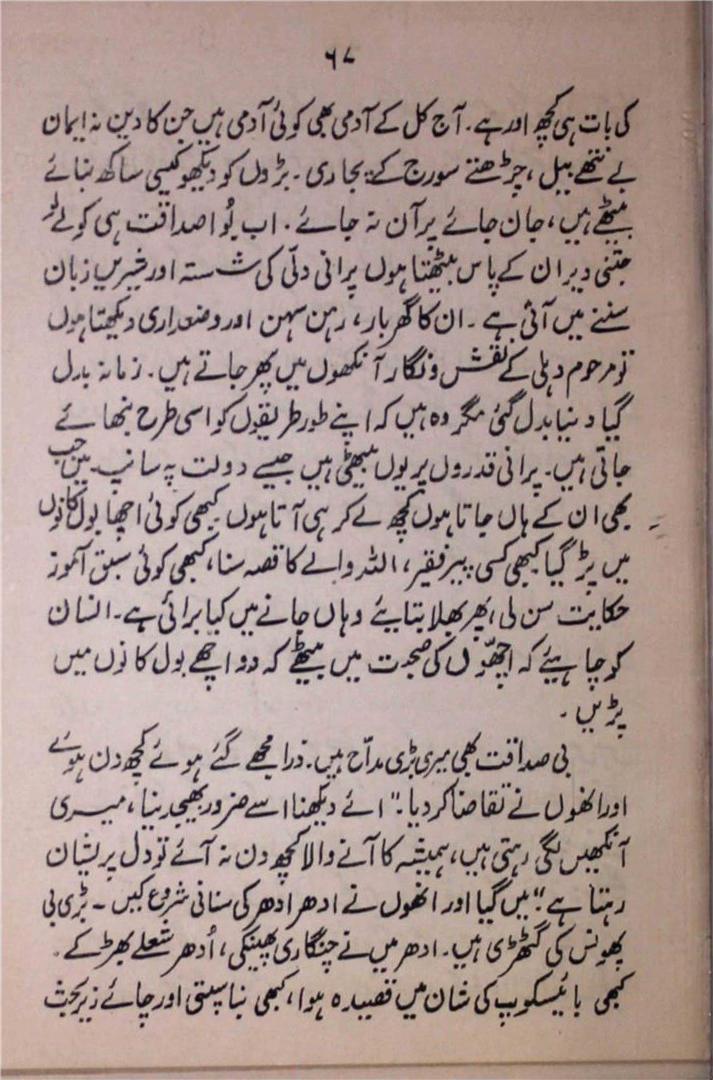 ۶۷
کی بات ہی کچھ اور ہے۔ آج کل کے آدمی بھی کوئی آدمی ہیں جن کا دین نہ ایمان
بے نتھے بیل، چڑھتے سورج کے پجاری۔ بڑوں کو دیکھو کیسی ساکھ بنائے
بیٹھے ہیں، جان جائے پر آن نہ جائے۔ اب بُوا صداقت ہی کو لے لو
جتنی دیر ان کے پاس بیٹھتا ہوں پرانی دلّی کی شستہ اور شیریں زبان
سننے میں آتی ہے۔ ان کا گھر بار، رہن سہن اور وضعداری دیکھتا ہوں
تو مرحوم دہلی کے نقش و نگار آنکھوں میں پھر جاتے ہیں۔ زمانہ بدل
گیا دنیا بدل گئی مگر وہ ہیں کہ اپنے طور طریقوں کو اسی طرح نبھائے
جاتی ہیں۔ پرانی قدروں پر یوں بیٹھی ہیں جیسے دولت پہ سانپ۔ میں جب
بھی ان کے ہاں جاتا ہوں کچھ لے کر ہی آتا ہوں کبھی کوئی اچھا بول کانوں
میں پڑ گیا کبھی کسی پیر فقیر، اللہ والے کا قصہ سنا، کبھی کوئی سبق آموز
حکایت سن لی، پھر بھلا بتایئے وہاں جانے میں کیا برائی ہے۔ انسان
کو چاہیئے کہ اچھّوں کی صحبت میں بیٹھے کہ دو اچھے بول کانوں میں
پڑیں۔
بی صداقت بھی میری بڑی مداح ہیں۔ ذرا مجھے گئے ہوئے کچھ دن ہوئے
اور انھوں نے تقاضا کر دیا۔ "اے دیکھنا اسے ضرور بھیجد ینا، میری
آنکھیں لگی رہتی ہیں، ہمیشہ کا آنے والا کچھ دن نہ آئے تو دل پریشان
رہتا ہے" میں گیا اور انھوں نے ادھر ادھر کی سنانی شروع کیں۔ بڑی بی
پھونس کی گٹھڑی ہیں۔ ادھر میں نے چنگاری پھینکی، اُدھر شعلے بھڑکے۔
کبھی بائیسکوپ کی شان میں قصیدہ ہوا، کبھی بناسپتی اور چائے زیر بحث